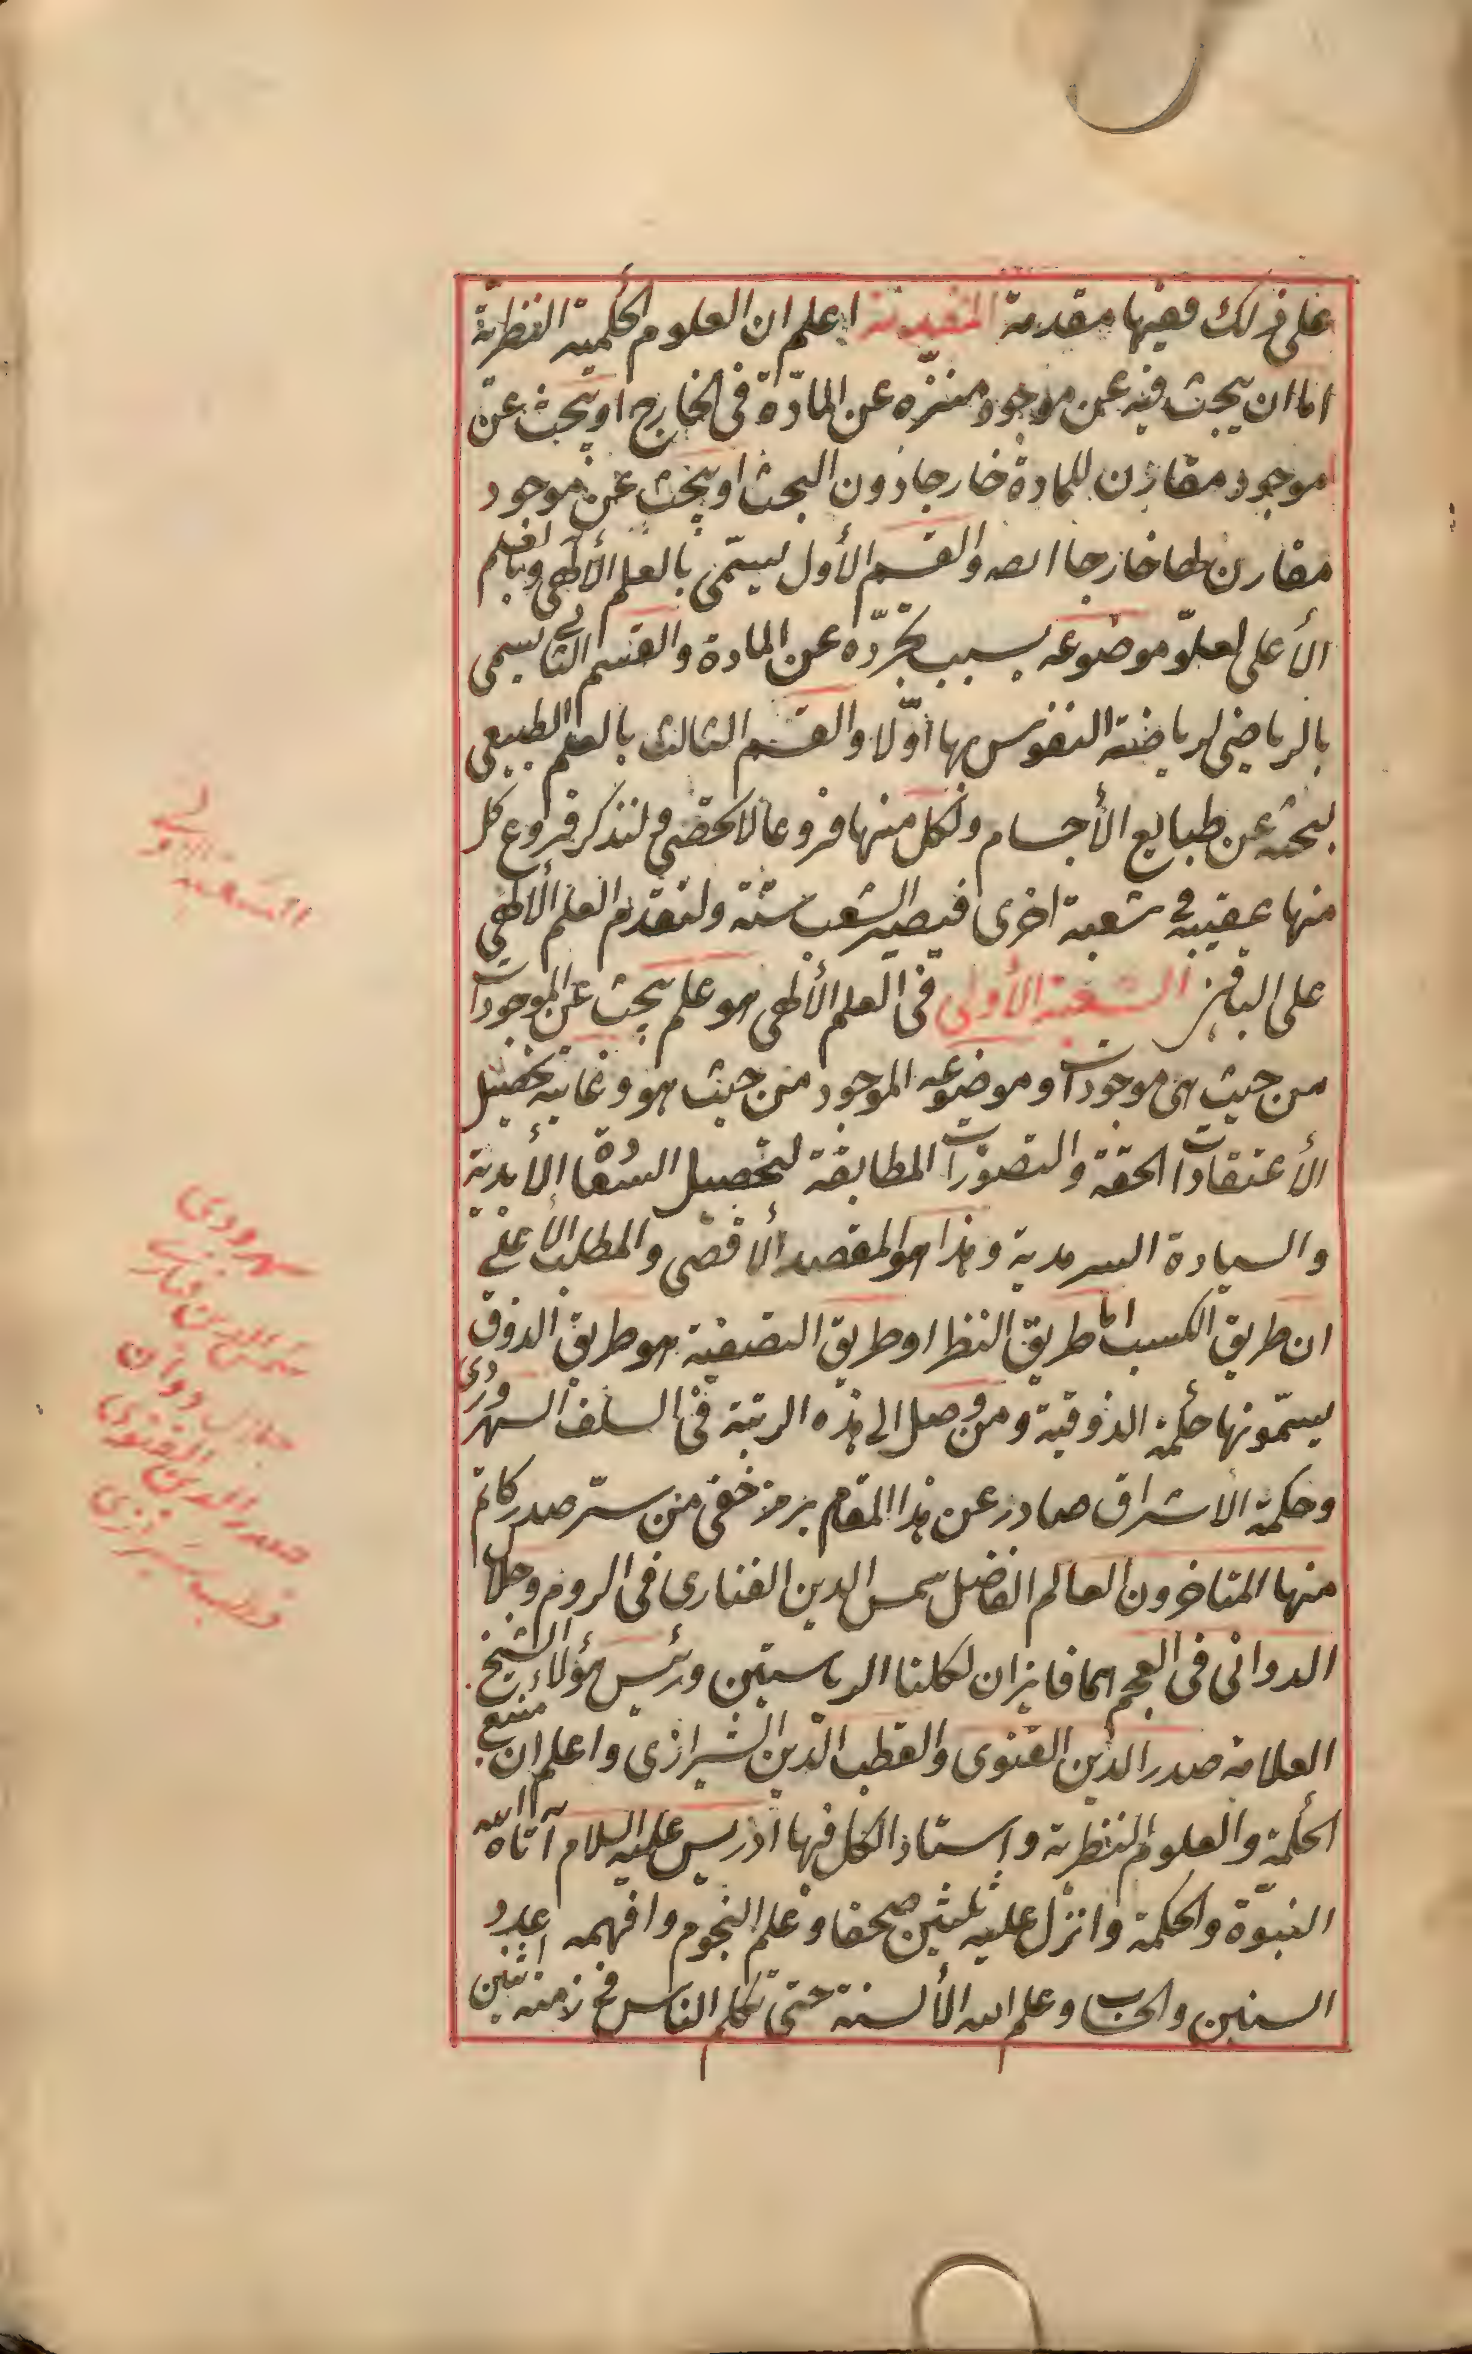 على ذلك ففيها مقدمة المقدمة اعلم ان العلوم الحكمية النظرية
اما ان يبحث فيه عن موجود منزّه عن المادّة فى الخارج او يبحث عن
موجود مقارن للمادة خارجا دون البحث او يبحث عن موجود
مقارن لها خارجا والقسم الأول يسمّى بالعلم الألهى وبالعلم
الأعلى لعلوّ موضوعه بسبب تجرّده عن المادة والقسم الثانى يسمى
بالرياضى لرياضة النفوس بها اوّلا والقسم الثالث بالعلم الطبيعى
لبحثه عن طبايع الأجسام ولكل منها فروعا لا تحصى فلنذكر فروع كل
منها عقيبه فى شعبة اخرى فيصير الشعب ستة ولنقدم العلم الألهى
على الباقين الشعبة الأولى فى العلم الألهى هو علم يبحث عن الموجودات
من حيث هى موجودات وموضوعه الموجود من حيث هو وغايته تحصيل
الأعتقادات الحقة والتصورات المطابقة لتحصيل السعادة الأبدية
والسيادة السرمدية وهذا هو المقصد الأقصى والمطلب الأعلى
ان طريق الكسب اما طريق النظر او طريق التصفية هو طريق الذوق
يسمّونها حكمة الذوقية ومن وصل الى هذه الرتبة فى السلف السهروردى
وحكمة الاشراق صادر عن هذا المقام برمز خفى من سرّ صدر كاتم
منها المتاخرون العالم الفاضل شمس الدين الفنارى فى الروم وجلال
الدوانى فى العجم هما فايزان لكلتا الرياستين ورئيس هؤلاء الشيخ
العلامة صدر الدين القنوى والقطب الدين الشيرازى واعلم ان منبع
الحكمة والعلوم النظرية واستاذ الكل فيها ادريس عليه السلام آتاه الله
النبوّة والحكمة وانزل عليه ثلثين صحفا وعلم النجوم وافهمه عدد
السنين والحساب وعلم الله الألسنة حتى تكلم الناس فى زمنه اثنين
الشعبة الاولى
سهروردى
شمس الدين فنارى
جلال دوان
صدر الدين القنوى
قطب شيرازى